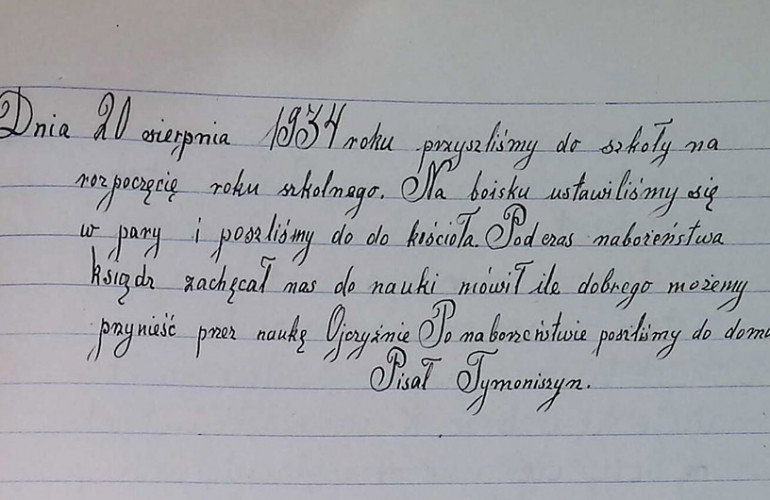 Dnia 20 sierpnia 1934 roku przyszliśmy do szkoły na
rozpoczęcię roku szkolnego. Na boisku ustawiliśmy się
w pary i poszliśmy do do kościoła. Podczas nabożeństwa
ksiądz zachęcał nas do nauki mówił ile dobrego możemy
przynieść przez naukę Ojczyźnie Po naborzeństwie poszliśmy do domu
Pisał Tymoniszyn.